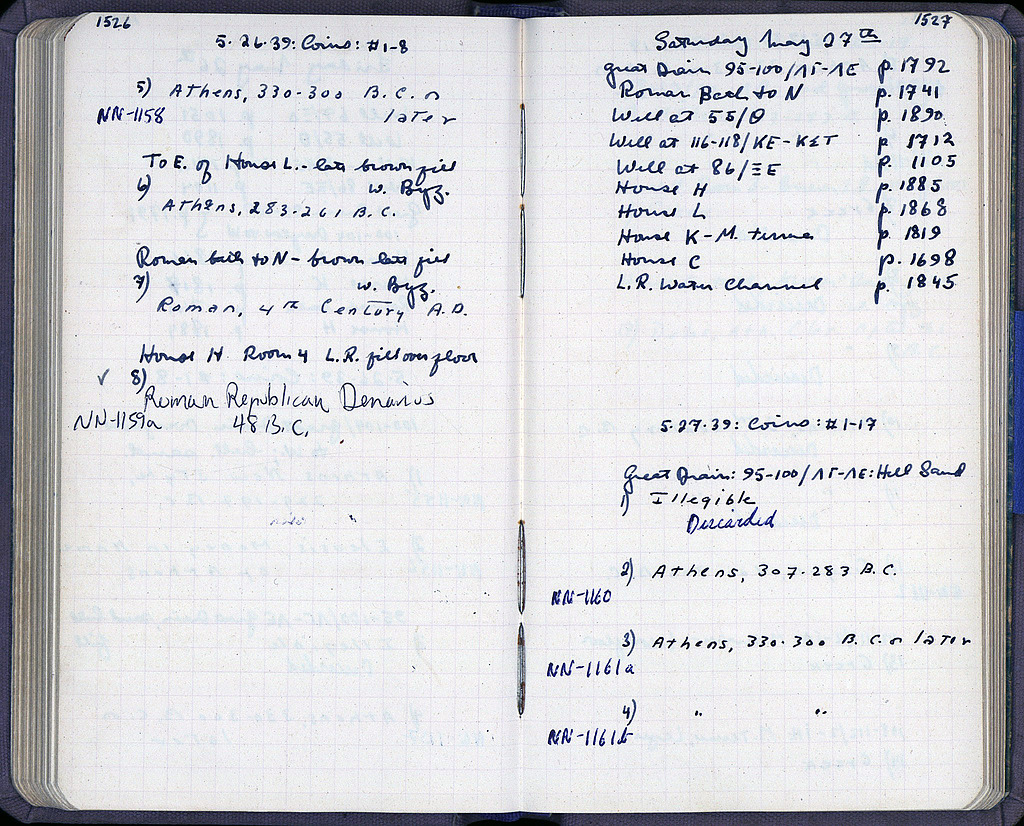 1526
5.26.39: Coins: #1-8
5) Athens, 330-300 B.C. or
NN-1158 later
To E. of House L. - late brown fill
6) w. Byz.
Athens, 283-261 B.C.
Roman bath to N - brown late fill
7) w. Byz.
Roman, 4th Century A.D.
House H Room 4 L.R. fill over floor
✓ 8)
Roman Republican Denarius
NN-1159a 48 B.C.
1527
Saturday May 27th
Great Drain 95-100/ΛΣΤ-ΛΕ p. 1792
Roman Bath to N p. 1741
Well at 55/Θ p. 1890
Well at 116-118/ΚΕ-ΚΣΤ p. 1712
Well at 86/ΞΕ p. 1105
House H p. 1885
House L p. 1868
House K-M. terrace p. 1819
House C p. 1698
L.R. Water Channel p. 1845
5.27.39: Coins: #1-17
Great Drain: 95-100/ΛΣΤ-ΛΕ: Hell Sand
1) Illegible
Discarded
2) Athens, 307-283 B.C.
NN-1160
3) Athens, 330-300 B.C. or later
NN-1161a
4) " "
NN-1161b